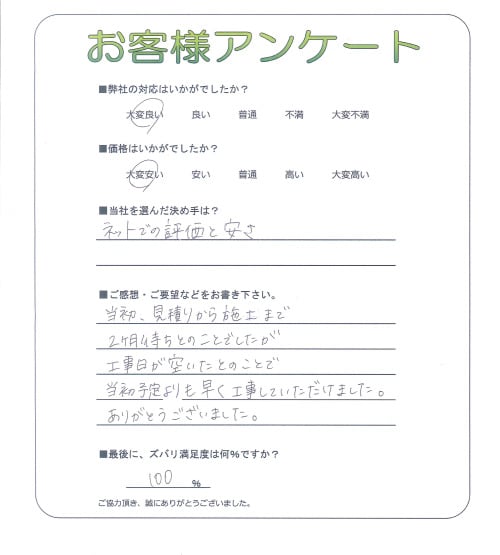 お客様アンケート
■弊社の対応はいかがでしたか？
大変良い 良い 普通 不満 大変不満
■価格はいかがでしたか？
大変安い 安い 普通 高い 大変高い
■当社を選んだ決め手は？
ネットでの評価と安さ
■ご感想・ご要望などをお書き下さい。
当初、見積りから施工まで
2ヶ月待ちとのことでしたが
工事日が空いたとのことで
当初予定よりも早く工事していただけました。
ありがとうございました。
■最後に、ズバリ満足度は何％ですか？
100 ％
ご協力頂き、誠にありがとうございました。